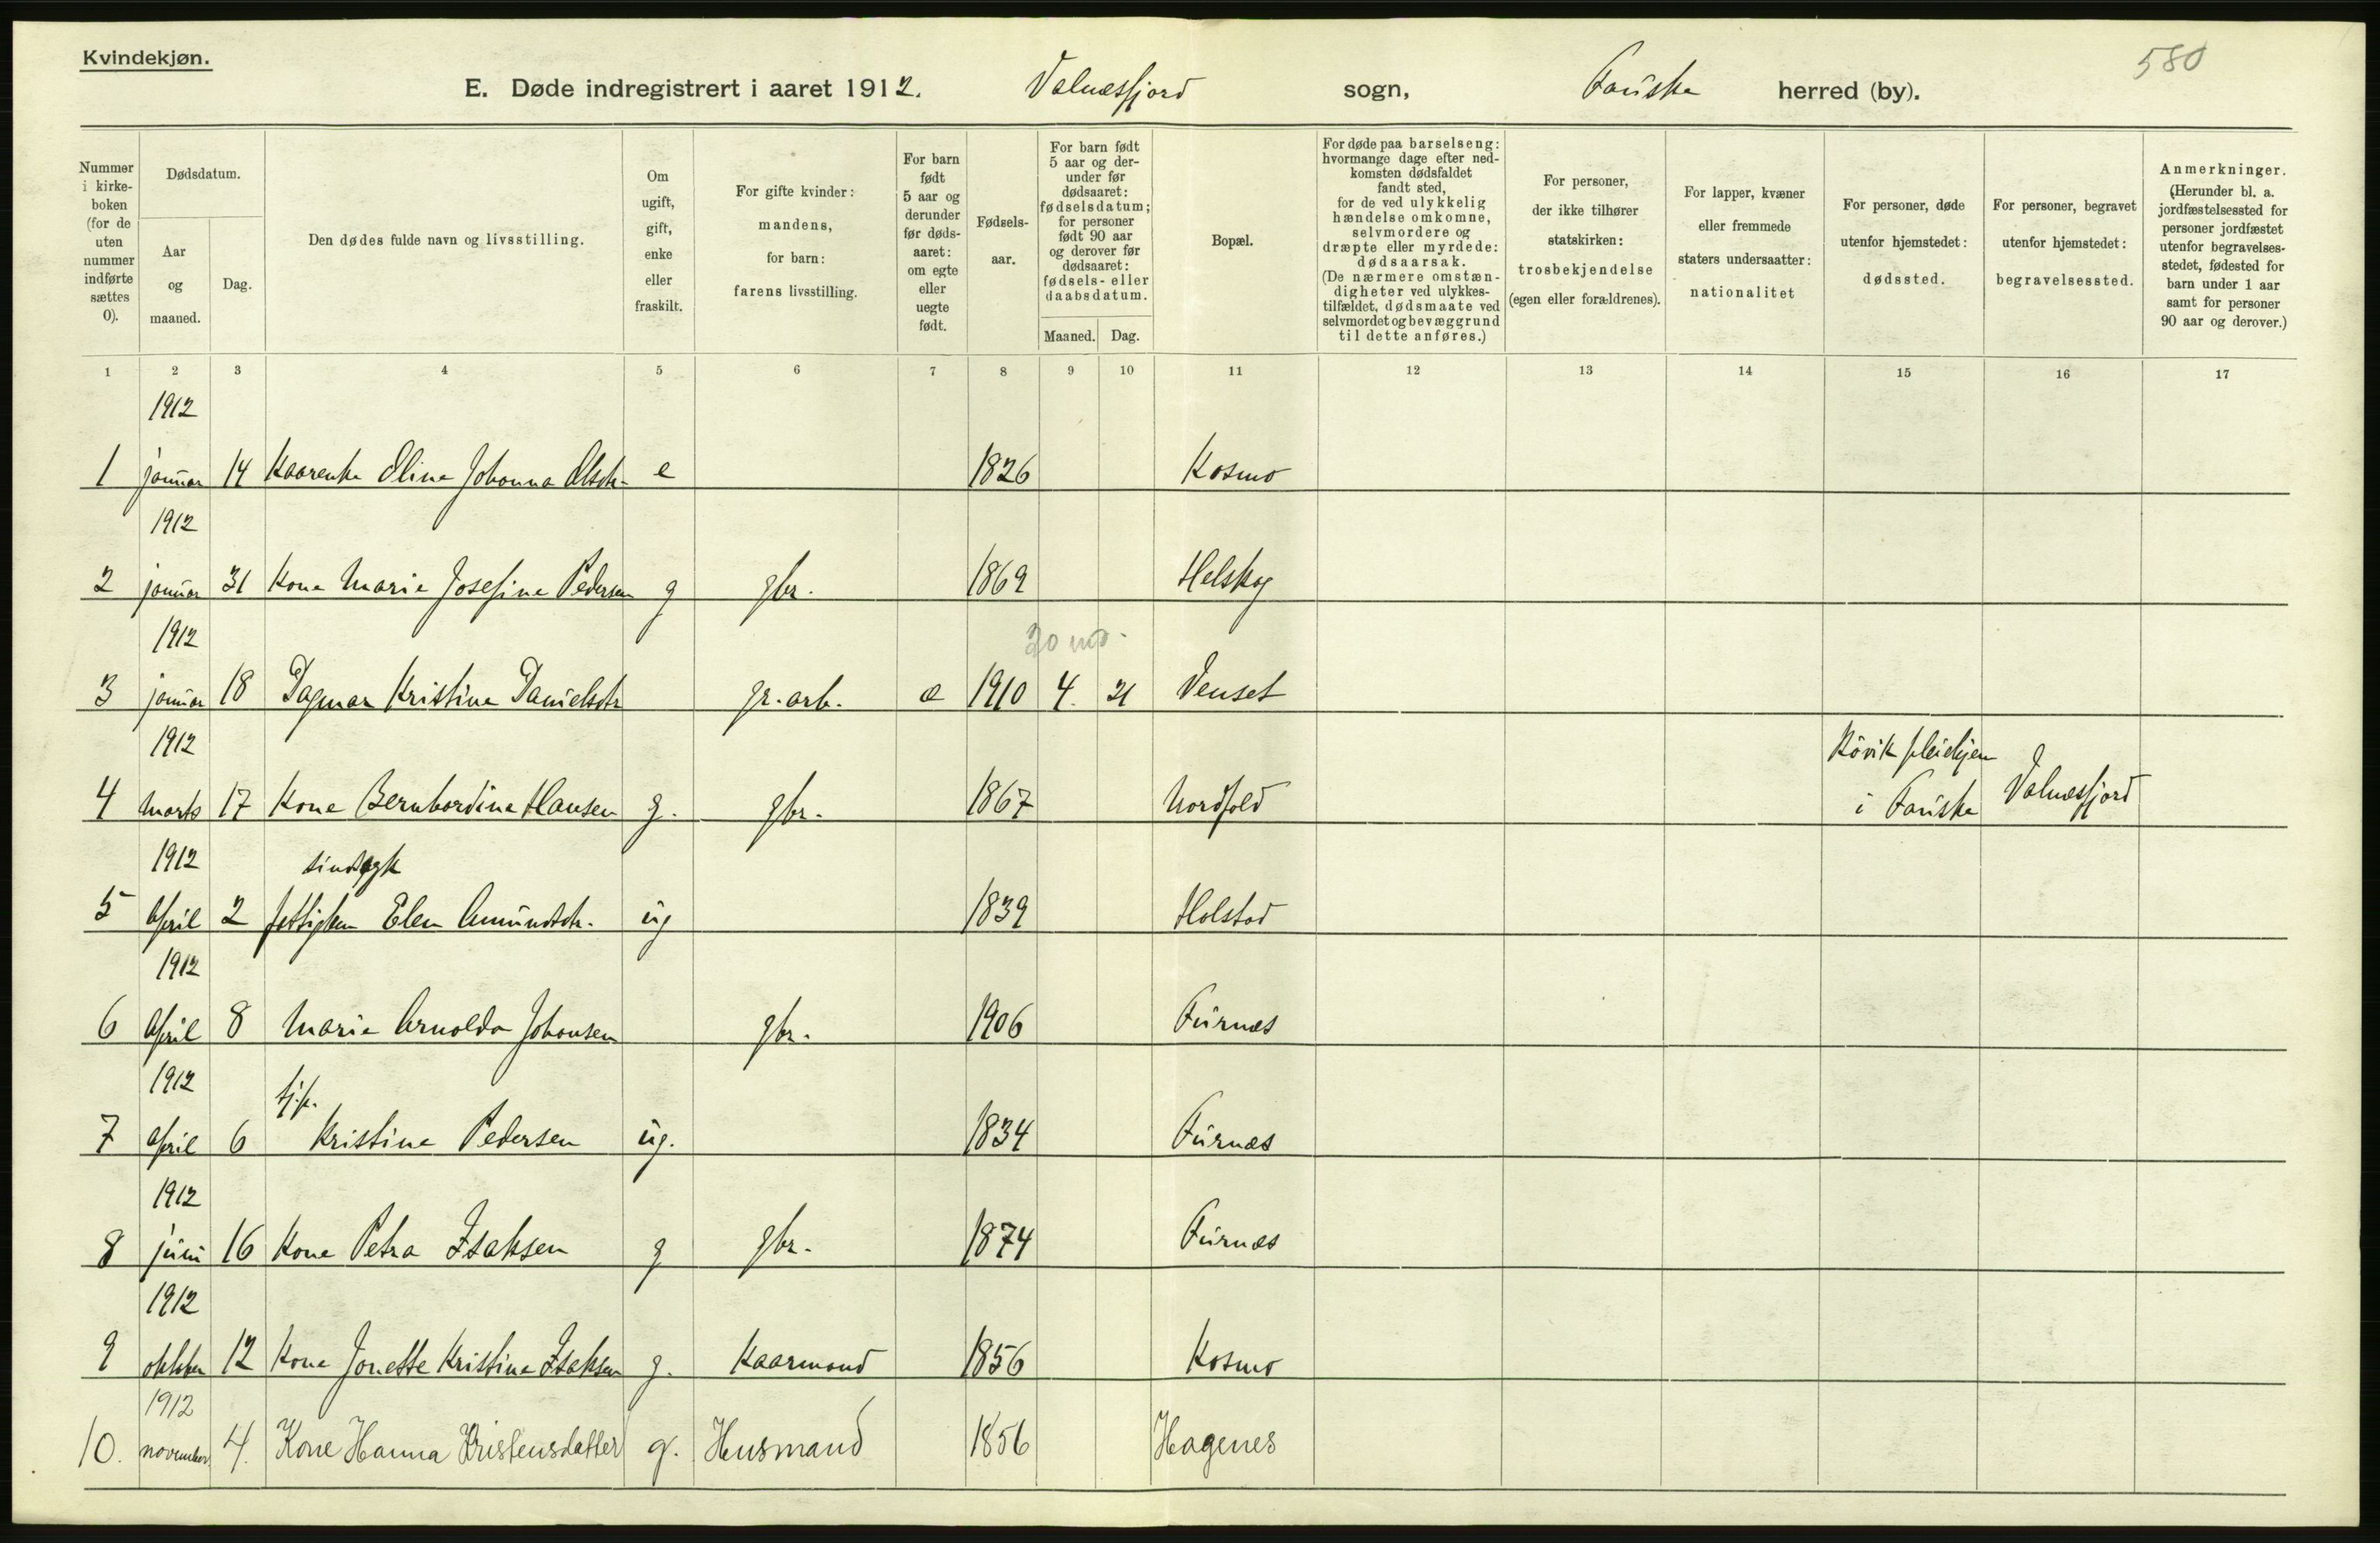 Kvindekjøn.
580
E. Døde indregistrert i aaret 1912. Valnæsfjord sogn, Fauske herred (by).
Nummer i kirke- boken (for de uten nummer indførte sættes 0).
Dødsdatum.
Aar og maaned.
Dag.
Den dødes fulde navn og livsstilling.
Om ugift, gift, enke eller fraskilt.
For gifte kvinder: mandens, for barn: farens livsstilling.
For barn født 5 aar og derunder før døds- aaret: om egte eller uegte født.
Fødsels- aar.
For barn født 5 aar og der- under før dødsaaret: fødselsdatum; for personer født 90 aar og derover før dødsaaret: fødsels- eller daabsdatum.
Maaned. Dag.
Bopæl.
For døde paa barselseng: hvormange dage efter ned- komsten dødsfaldet fandt sted, for de ved ulykkelig hændelse omkomne, selvmordere og dræpte eller myrdede: dødsaarsak. (De nærmere omstæn- digheter ved ulykkes- tilfældet, dødsmaate ved selvmordet og bevæggrund til dette anføres.)
For personer, der ikke tilhører statskirken: trosbekjendelse (egen eller forældrenes).
For lapper, kvæner eller fremmede staters undersaatter: nationalitet
For personer, døde utenfor hjemstedet: dødssted.
For personer, begravet utenfor hjemstedet: begravelsessted.
Anmerkninger. (Herunder bl. a. jordfæstelsessted for personer jordfæstet utenfor begravelses- stedet, fødested for barn under 1 aar samt for personer 90 aar og derover.)
1 2 3 4 5 6 7 8 9 10 11 12 13 14 15 16 17
1912
1 januar 14 Kaarenke Oline Johanna Olsdtr. e 1826 Kosmo
1912
2 januar 31 Kone Marie Josefine Pedersen g gbr. 1869 Helskog
1912
20 md.
3 januar 18 Dagmar Kristine Danielsdtr gr. arb. æ 1910 4. 21 Venset
1912 Rövik pleiehjem
4 Marts 17 Kone Bernhardine Hansen g. gbr. 1867 Nordfold i Fauske Valnæsfjord
1912 sindssyk
5 April 2 fattiglem Elen Amundsdtr. ug 1839 Holstad
1912
6 April 8 Marie Arnolda Johansen gbr. 1906 Furnes
1912 tj.p.
7 April 6 Kristine Pedersen ug. 1834 Furnes
1912
8 juni 16 Kone Petra Isaksen g gbr. 1874 Furnes
1912
9 oktober 12 Kone Jonette Kristine Isaksen g. Kaarmand 1856 Kosmo
1912
10. november 4. Kone Hanna Kristensdatter g. Husmand 1856 Hagenes